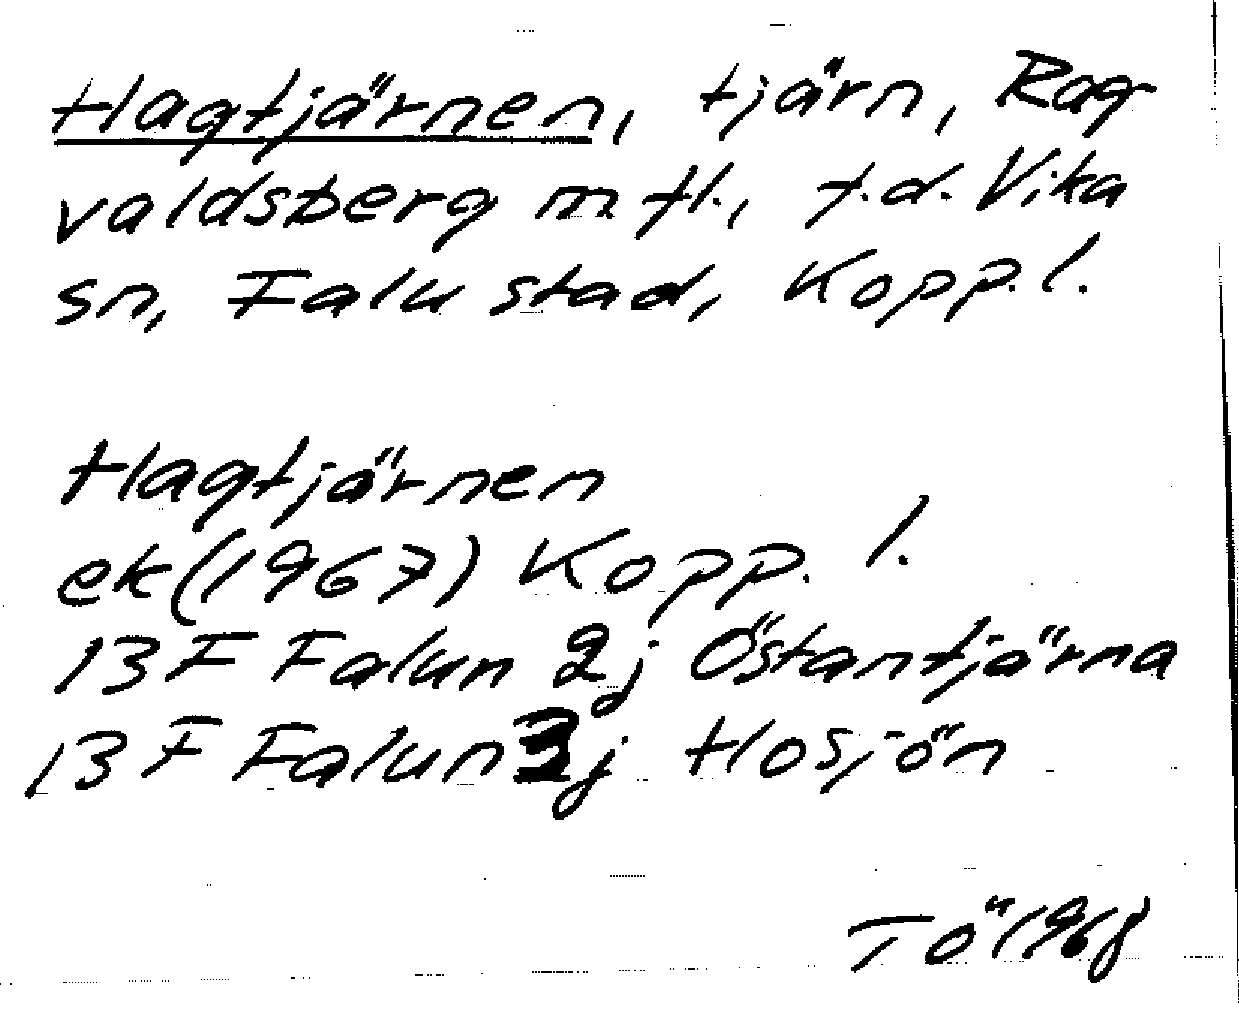 Hagtjärnen, tjärn, Rag-
valdsberg m fl., f.d. Vika
sn, Falu stad, Kopp.l.
Hagtjärnen
ek (1967) Kopp. l.
13 F Falun 2j Östantjärna
13 F Falun 3j Hosjön
TÖ 1968